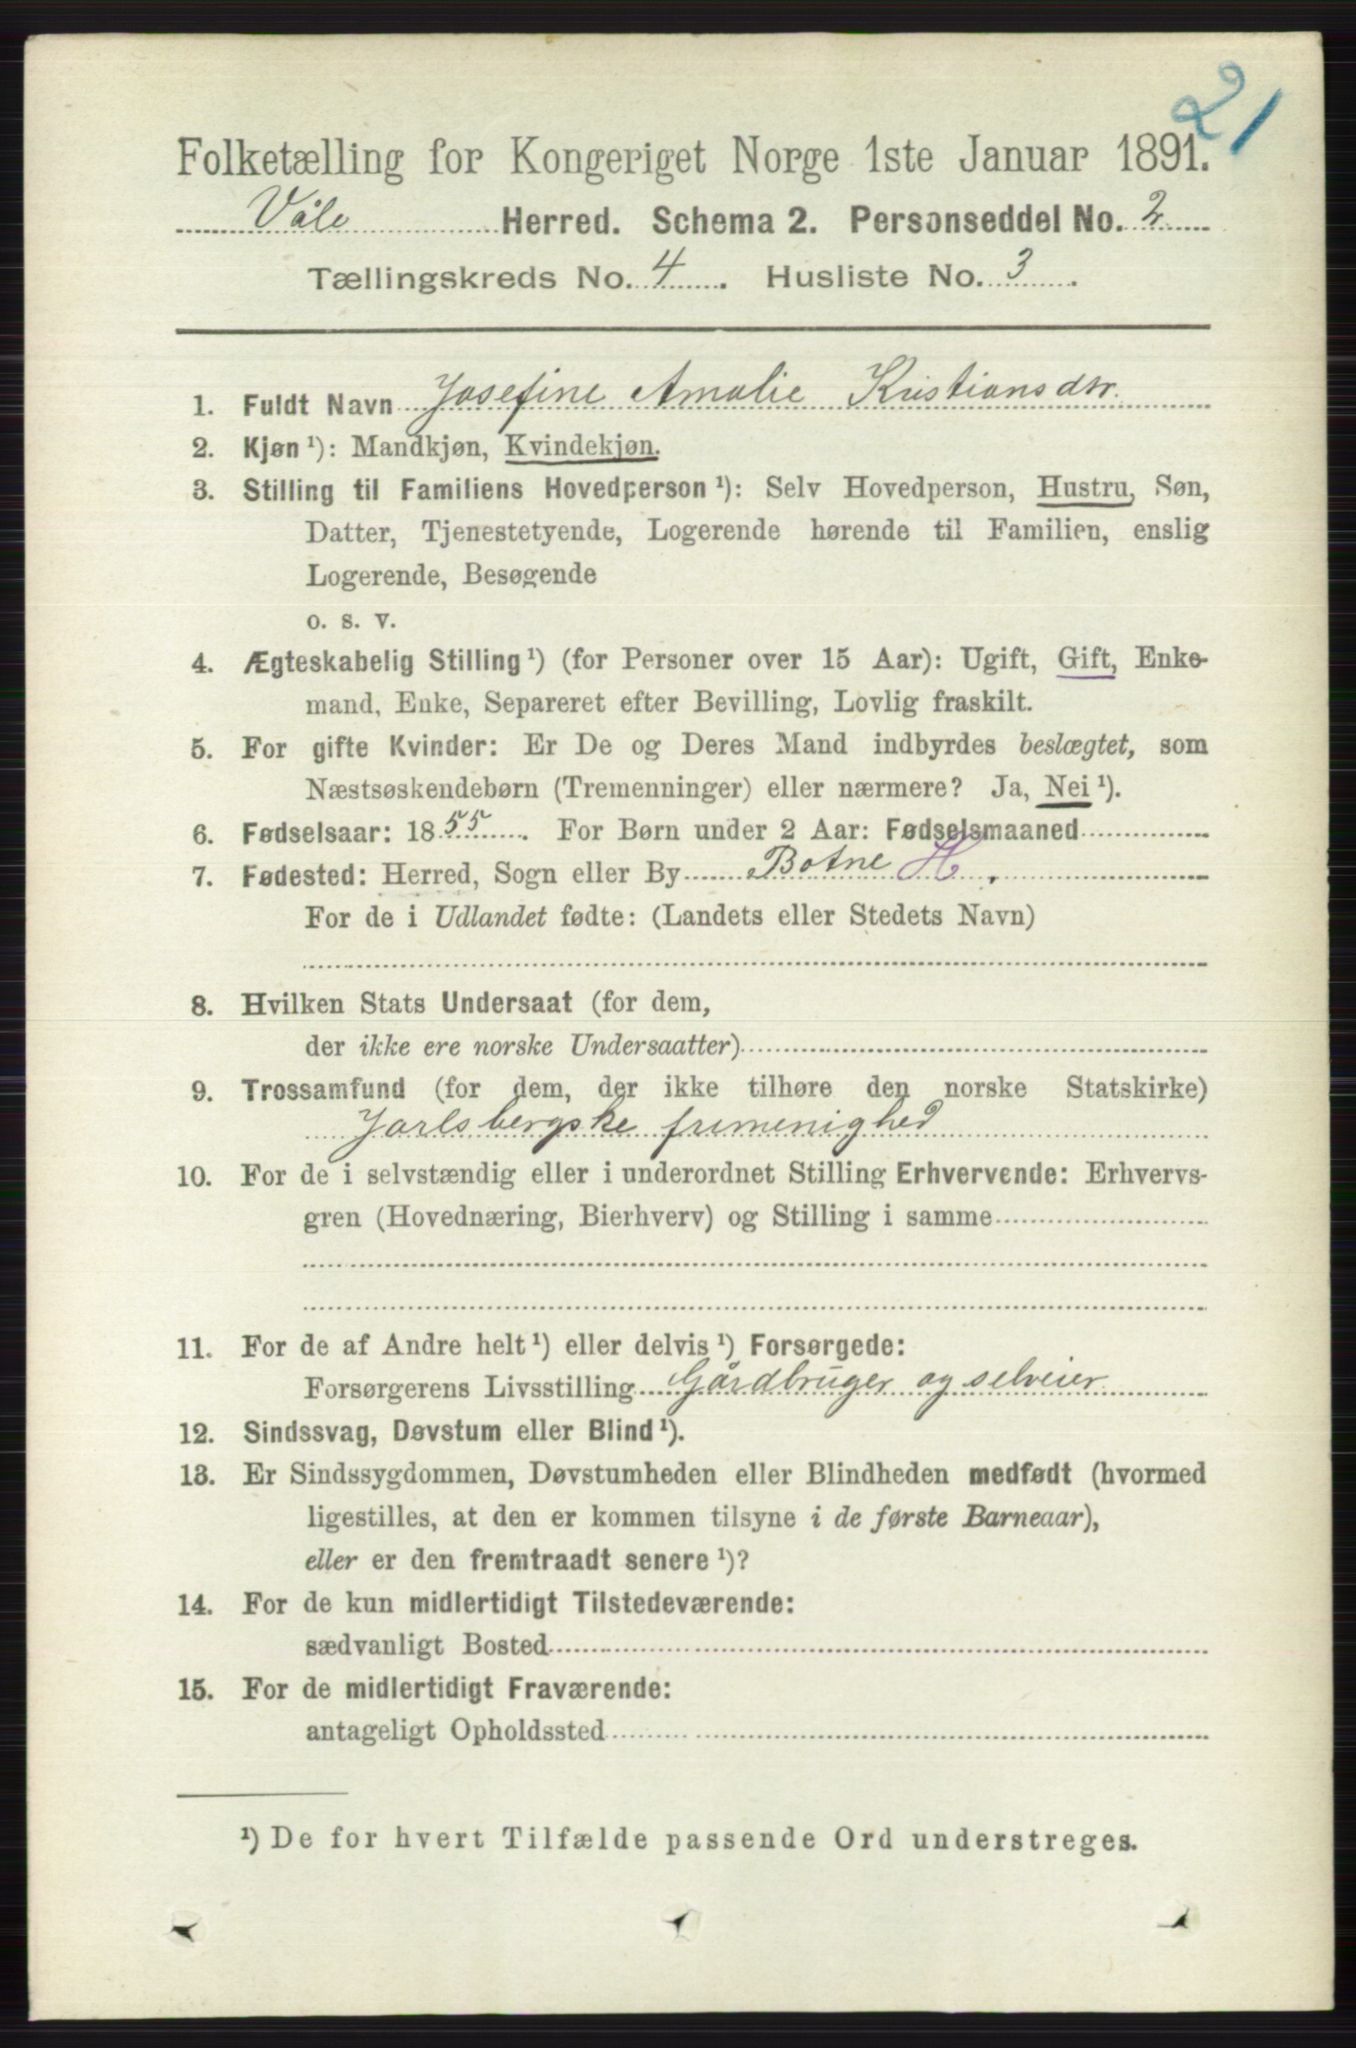 21
Folketælling for Kongeriget Norge 1ste Januar 1891.
Våle Herred. Schema 2. Personseddel No. 2
Tællingskreds No. 4. Husliste No. 3.
1. Fuldt Navn Josefine Amalie Kristiansdtr.
2. Kjøn ¹): Mandkjøn, Kvindekjøn.
3. Stilling til Familiens Hovedperson ¹): Selv Hovedperson, Hustru, Søn,
Datter, Tjenestetyende, Logerende hørende til Familien, enslig
Logerende, Besøgende
o. s. v.
4. Ægteskabelig Stilling ¹) (for Personer over 15 Aar): Ugift, Gift, Enke-
mand, Enke, Separeret efter Bevilling, Lovlig fraskilt.
5. For gifte Kvinder: Er De og Deres Mand indbyrdes beslægtet, som
Næstsøskendebørn (Tremenninger) eller nærmere? Ja, Nei ¹).
6. Fødselsaar: 1855. For Børn under 2 Aar: Fødselsmaaned
7. Fødested: Herred, Sogn eller By Botne H.
For de i Udlandet fødte: (Landets eller Stedets Navn)
8. Hvilken Stats Undersaat (for dem,
der ikke ere norske Undersaatter)
9. Trossamfund (for dem, der ikke tilhøre den norske Statskirke)
Jarlsbergske frimenighed
10. For de i selvstændig eller i underordnet Stilling Erhvervende: Erhvervs-
gren (Hovednæring, Bierhverv) og Stilling i samme
11. For de af Andre helt ¹) eller delvis ¹) Forsørgede:
Forsørgerens Livsstilling Gårdbruger og selveier
12. Sindssvag, Døvstum eller Blind ¹).
13. Er Sindssygdommen, Døvstumheden eller Blindheden medfødt (hvormed
ligestilles, at den er kommen tilsyne i de første Barneaar),
eller er den fremtraadt senere ¹)?
14. For de kun midlertidigt Tilstedeværende:
sædvanligt Bosted
15. For de midlertidigt Fraværende:
antageligt Opholdssted
¹) De for hvert Tilfælde passende Ord understreges.